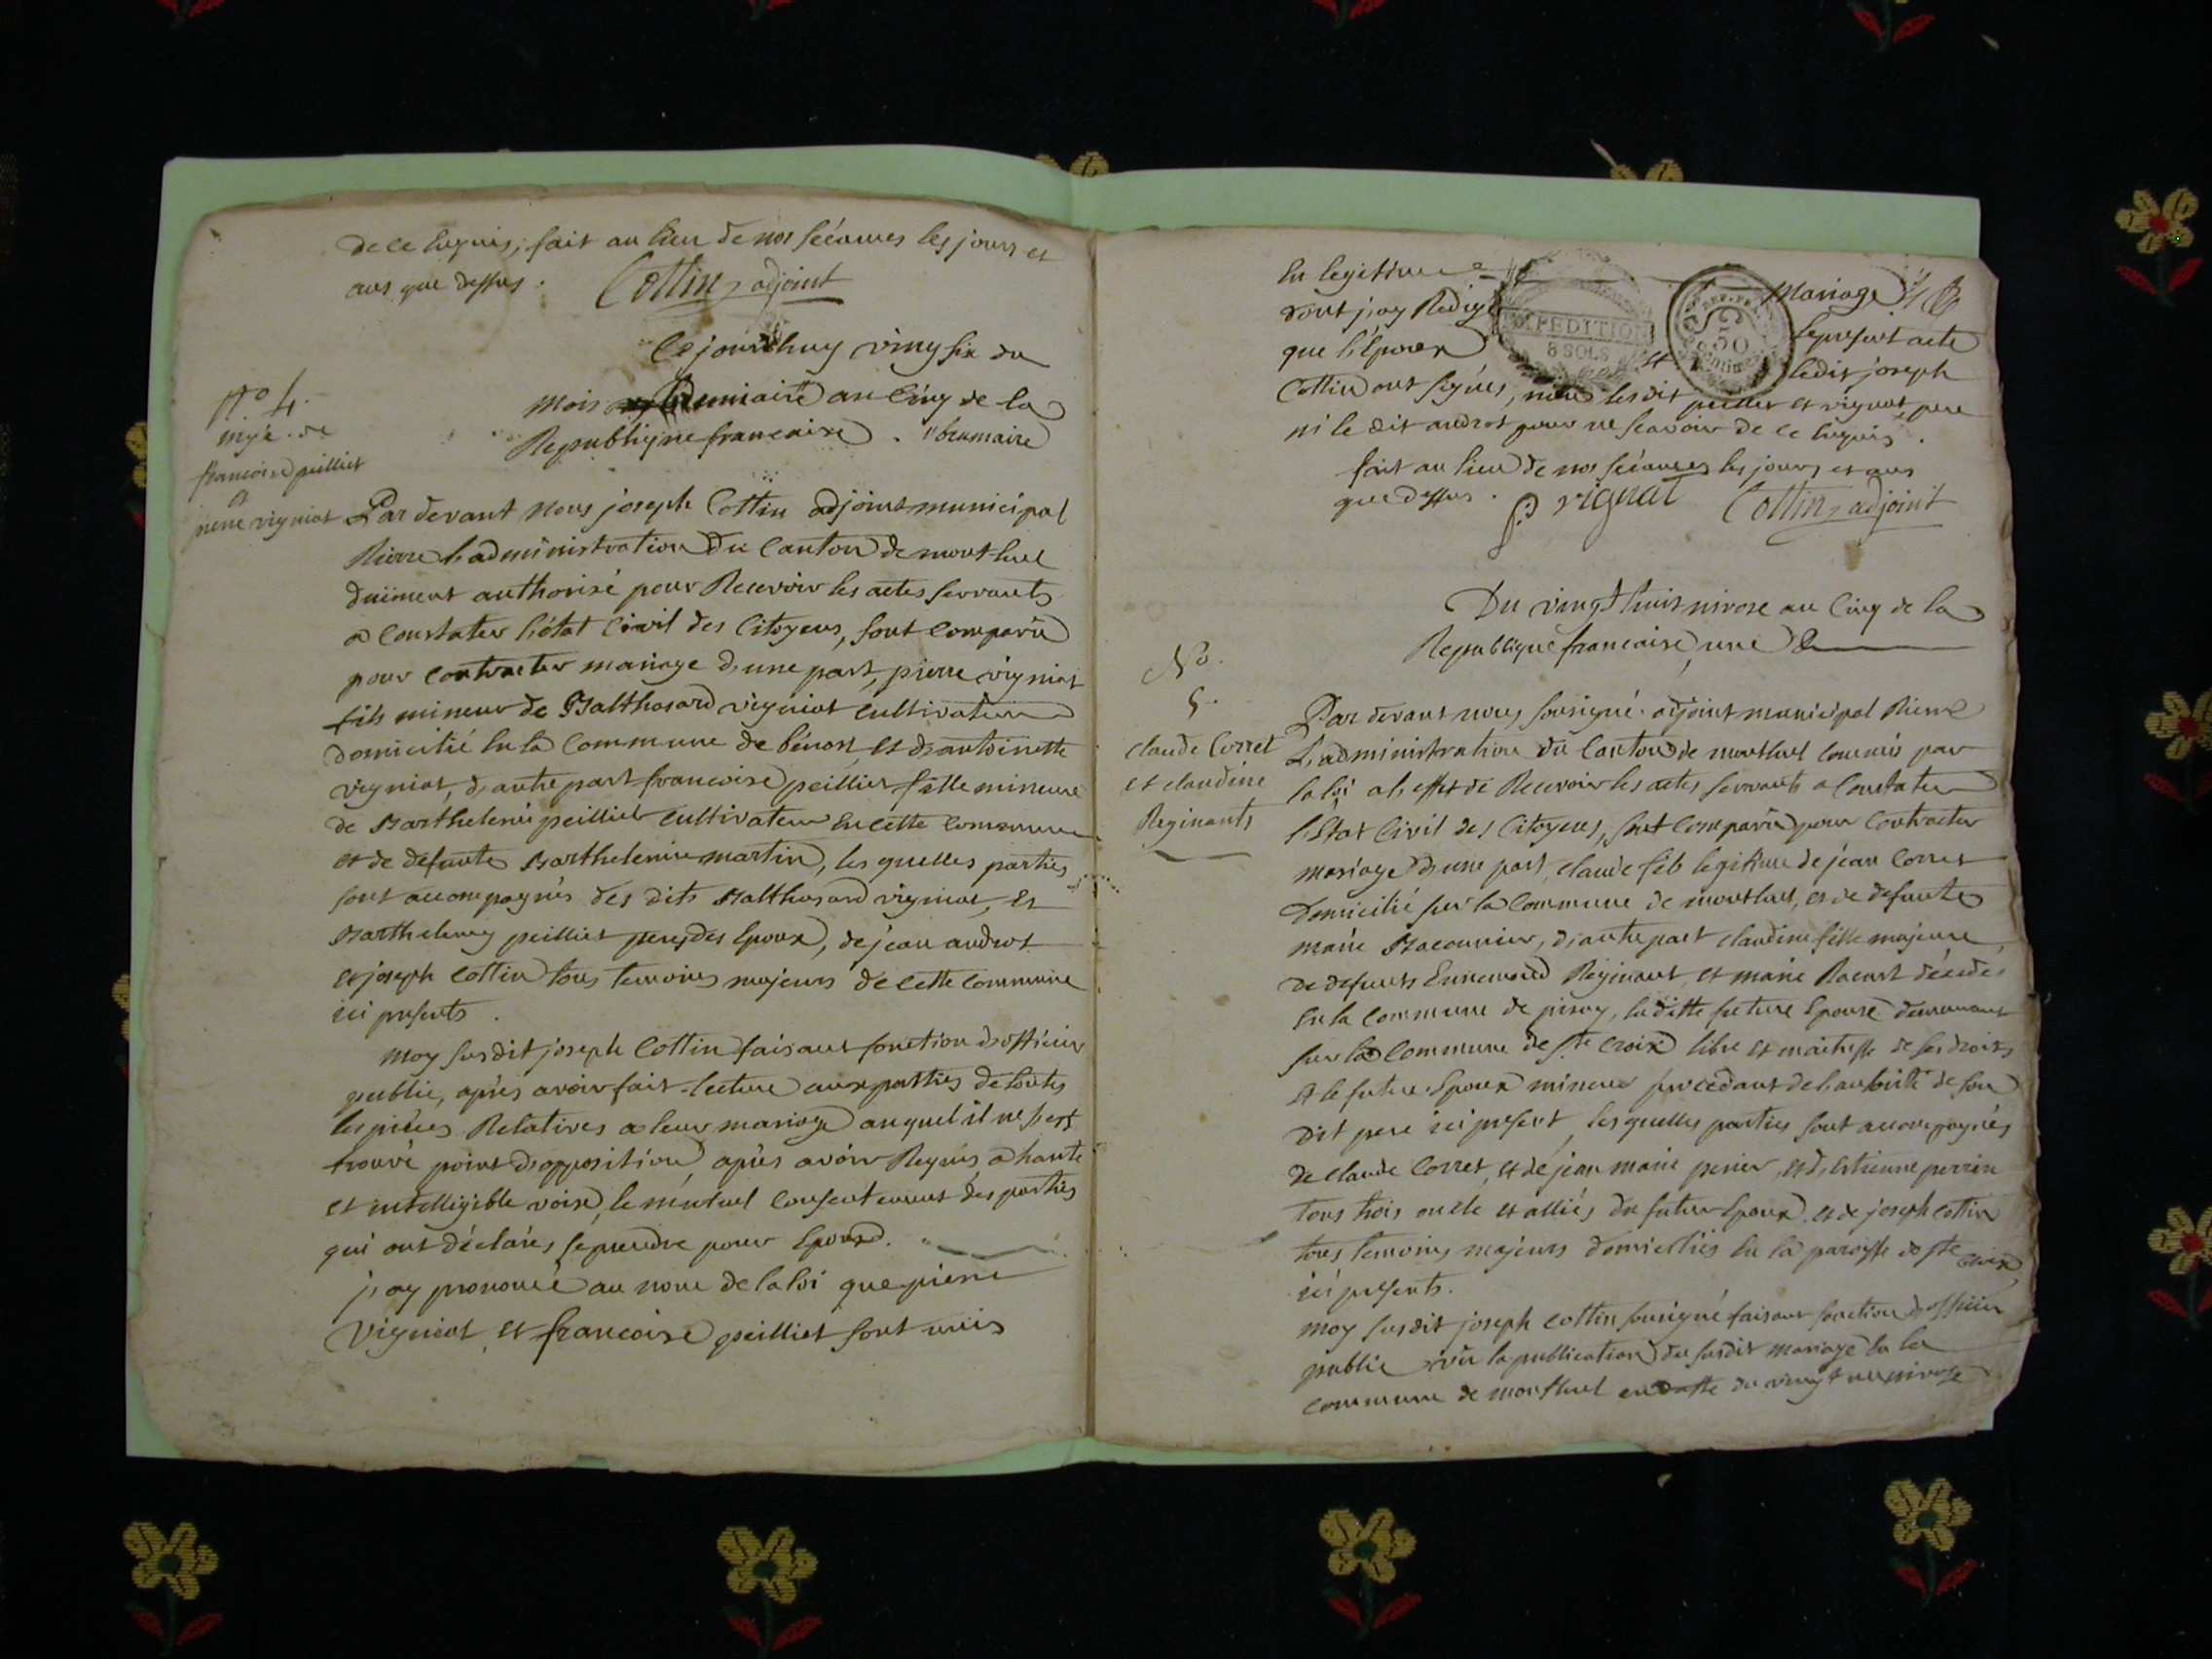 de ce Requis, fait au lieu de nos séeances les jours et
ans que dessus. Cottin adjoint
Ce jourdhuy vingt six du
mois brumaire an Cinq de la
Republique francaise. "brumaire
N.º 4.
mge. de
francoise peilliet
et
pierre vigniat
Par devant nous joseph Cottin adjoint municipal
Riere l'administration du Canton de montluel
duëment authorisé pour Recevoir les actes servants
a Constater l'état Civil des Citoyens, sont Comparu
pour Contracter mariage d'une part, pierre vigniat
fils mineur de Balthasard vigniat Cultivateur
domicilié en la Commune de bénost, et d'antoinette
vigniat, d'autre part francoise peilliet fille mineure
de Barthelemi peilliet Cultivateur en cette Commune
et de defunte Barthelemie martin, les quelles parties
sont accompagnés des dits Balthasard vigniat, et
Barthelemy peilliet peres des Epoux, de jean androt
et joseph Cottin tous temoins majeurs de cette Commune
ici presents.
moy susdit joseph Cottin faisant fonction d'officier
public, après avoir fait lecture aux parties de toutes
les pièces Relatives a leur mariage auquel il ne s'est
trouvé point d'opposition, après avoir Requis a haute
et intelligible voix, le mutuel Consentement des parties
qui ont déclarés se prendre pour Epoux.
j'ay prononcé au nom de la loi que pierre
Vigniat, et francoise peilliet sont unis
En legitime Mariage
dont j'ay Redigé le present acte
que l'Epoux et ledit joseph
Cottin ont signés, non lesdit peilliet et vigniat pere
ni le dit androt pour ne scavoir de ce Requis.
fait au lieu de nos séeances les jours et ans
que dessus. P. vignat Cottin adjoint
EXPEDITION
8 SOLS
REP. FRA.
50
centimes
Du vingt huit nivose an Cinq de la
Republique francaise, une &
No.
5.
claude Corret
et claudine
Reginants
Par devant nous sousigné adjoint municipal Riere
L'administration du Canton de montluel Commis par
la loi a l'effet de Recevoir les actes servants a Constater
l'Etat Civil des Citoyens, sont Comparu pour Contracter
mariage d'une part, claude fils legitime de jean Corret
Domicilié sur la Commune de montluel, et de defunte
marie Baconnier, d'autre part claudine fille majeure,
de defunts Ennemond Reginant, et marie Racurt décedés
en la Commune de pisay, la ditte future Epouse demeurant
sur la Commune de ste Croix libre et maitresse de ses droits
et le futur Epoux mineur procedant de l'authorité de son
Dit pere ici present, les quelles parties sont accompagnés
de claude Corret, et de jean marie perier, et d'Estienne perrin
tous trois oncle et alliés du futur Epoux, et de joseph Cottin
tous temoins majeurs domiciliés en la paroisse de ste Croix,
ici presents.
moy susdit joseph Cottin sousigné faisant fonction d'officier
public, vu la publication du susdit mariage en la
Commune de montluel en datte du vingt un nivose